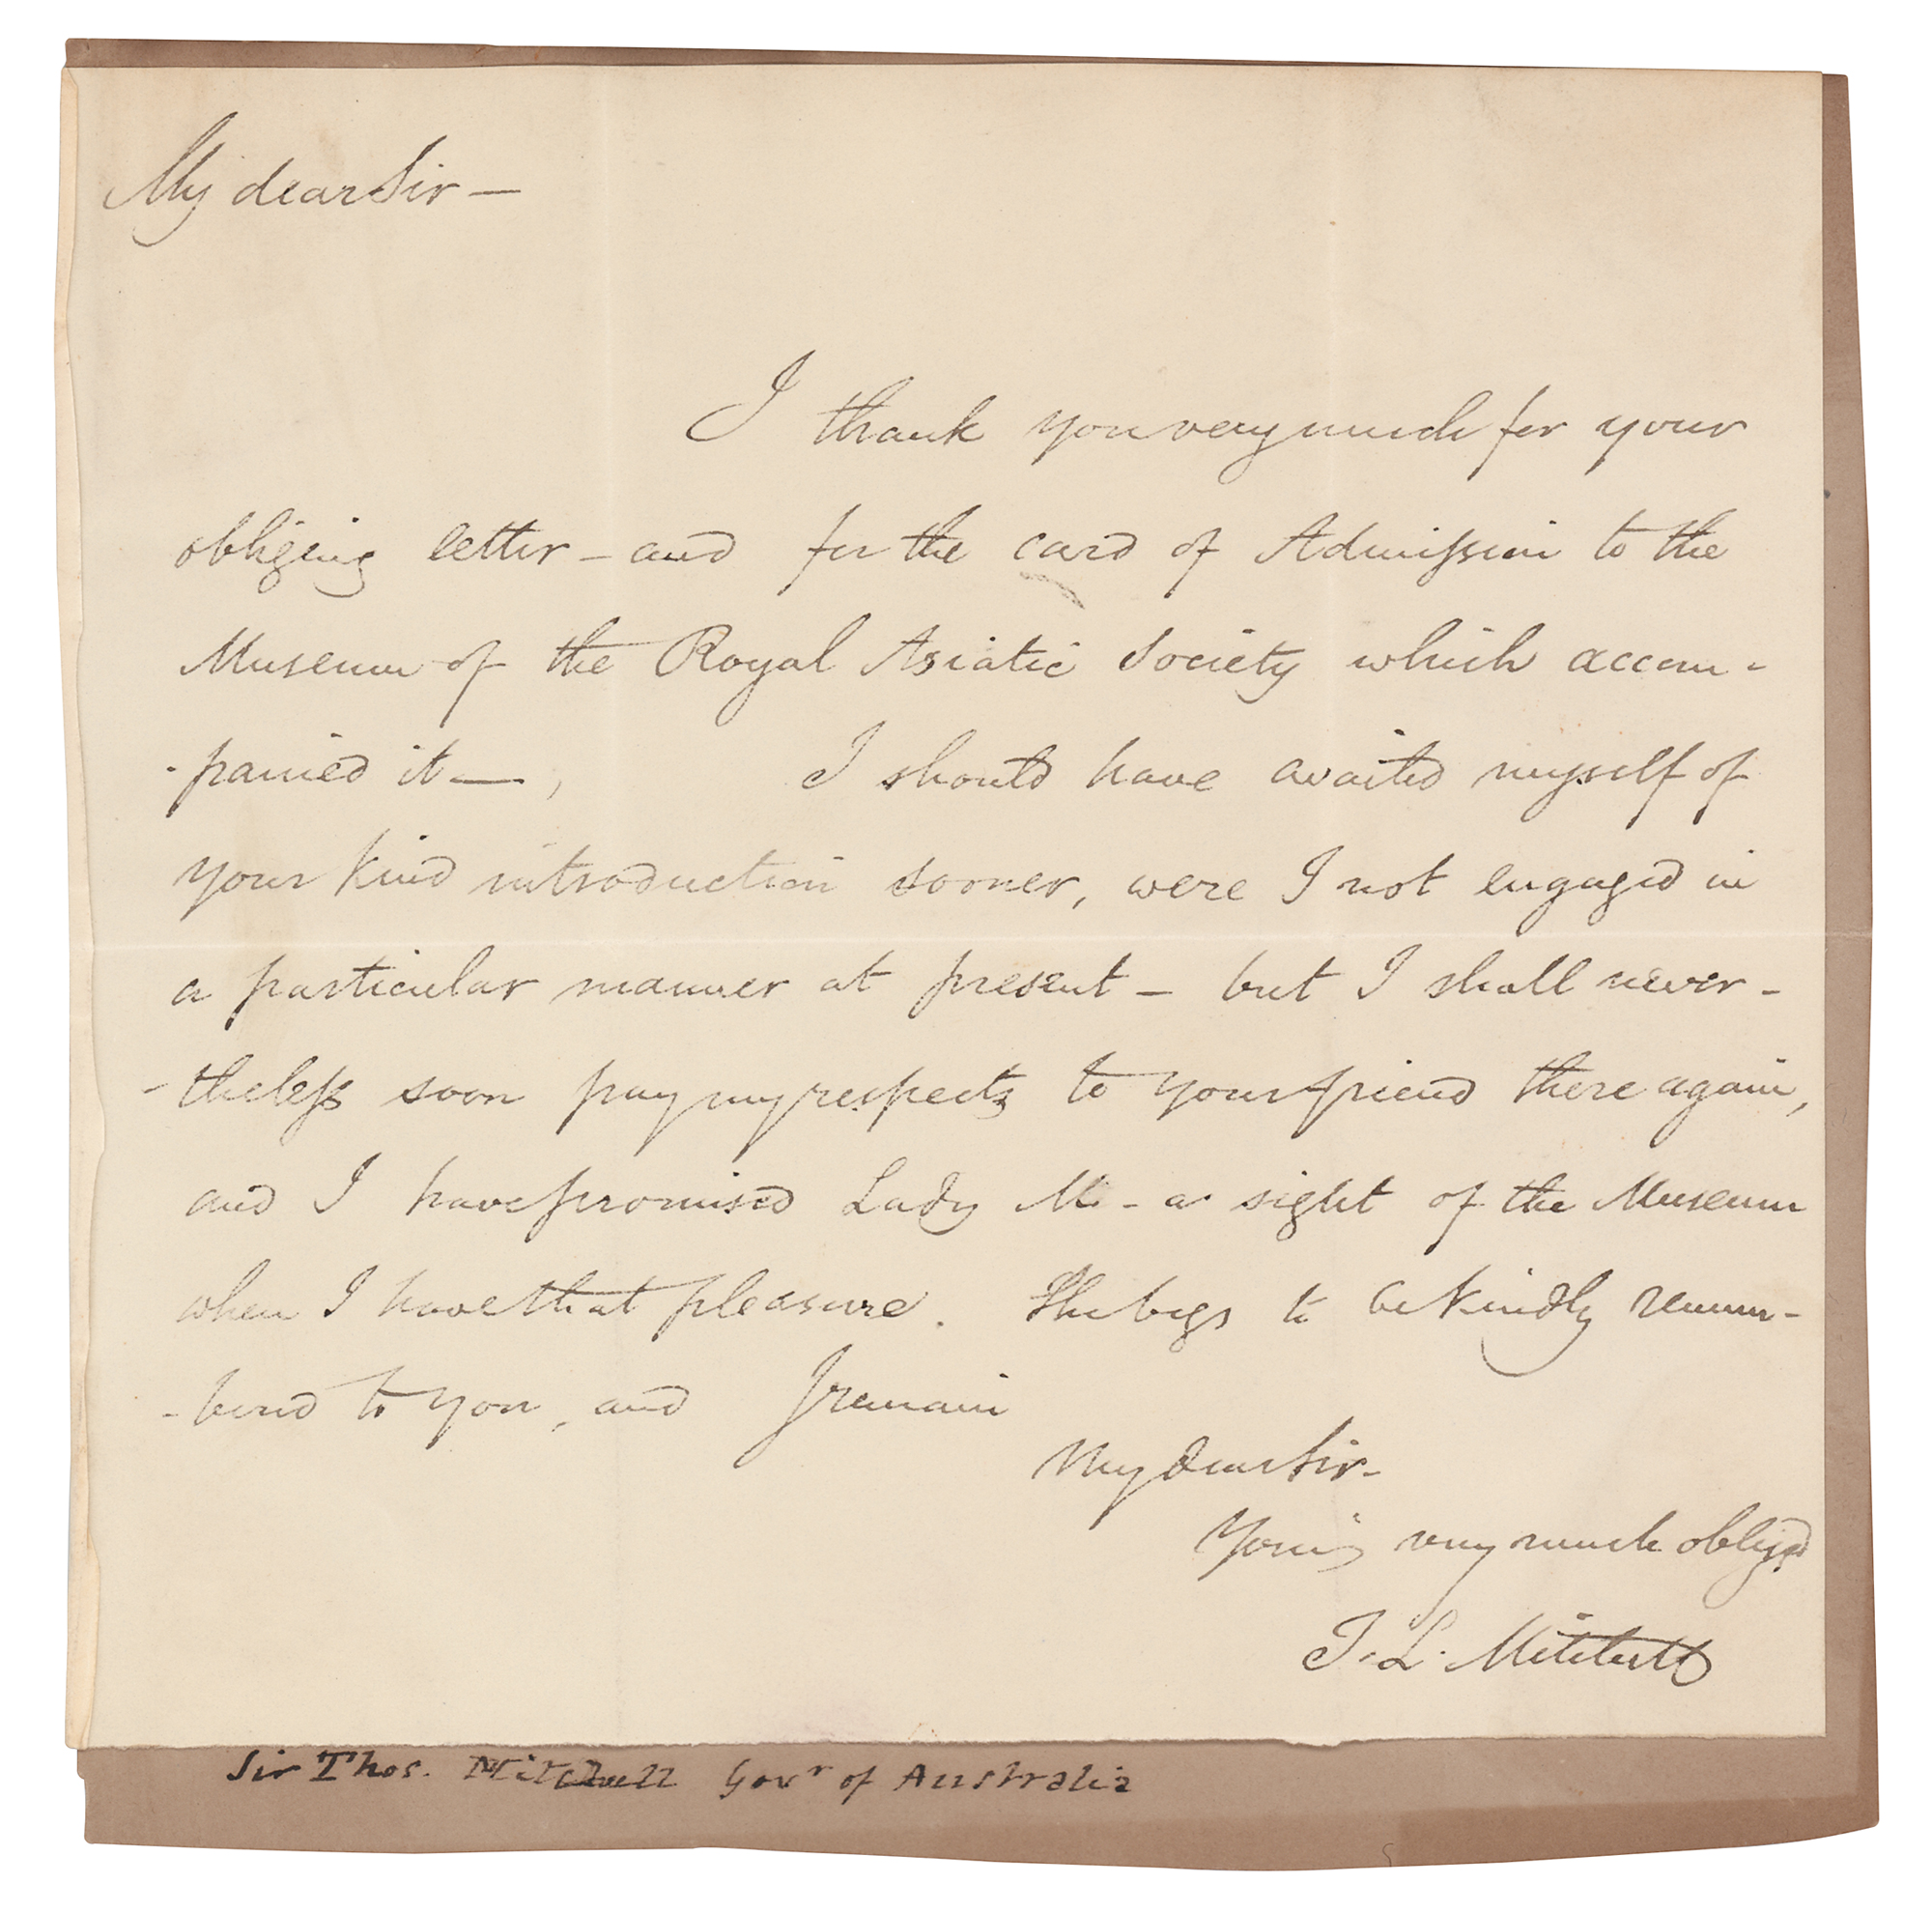 My dear Sir —
I thank you very much for your
obliging letter – and for the card of Admission to the
Museum of the Royal Asiatic Society which accom-
-panied it —, I should have availed myself of
your kind introduction sooner, were I not engaged in
a particular manner at present – but I shall never-
-theless soon pay my respects to your friend there again,
and I have promised Lady M. - a sight of the Museum
when I have that pleasure. She begs to be kindly remem-
-bered to you, and I remain
My dear Sir -
Yours very much obliged
T. L. Mitchell
Sir Thos. Mitchell Govr of Australia